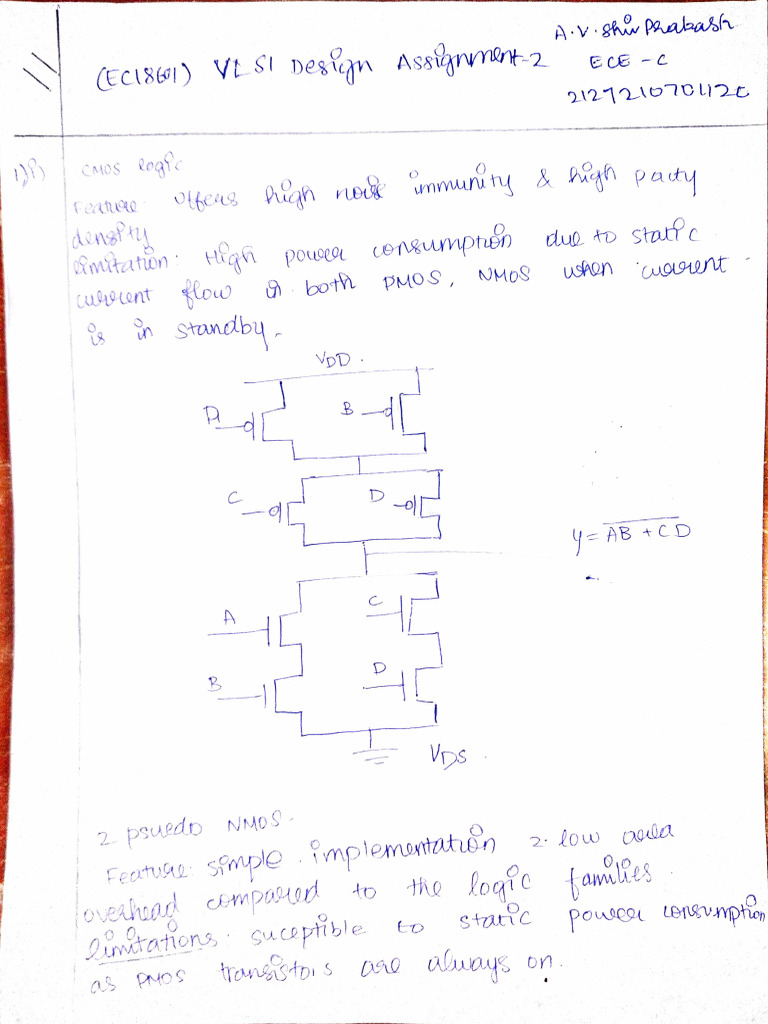 A.V. Shiv Prakash
(EC18601) VLSI Design Assignment-2 ECE - C
212721070112C
1)i) CMOS logic
Feature: Offers high noise immunity & high pacty
density
limitation: High power consumption due to static
current flow in both PMOS, NMOS when current
is in standby.
VDD.
B
C D
y = AB + CD
A C
B D
VDS.
2 psuedo NMOS.
Feature: simple. implementation 2. low area
overhead compared to the logic families.
limitations. suceptible to static power consumption
as PMOS transistors are always on.